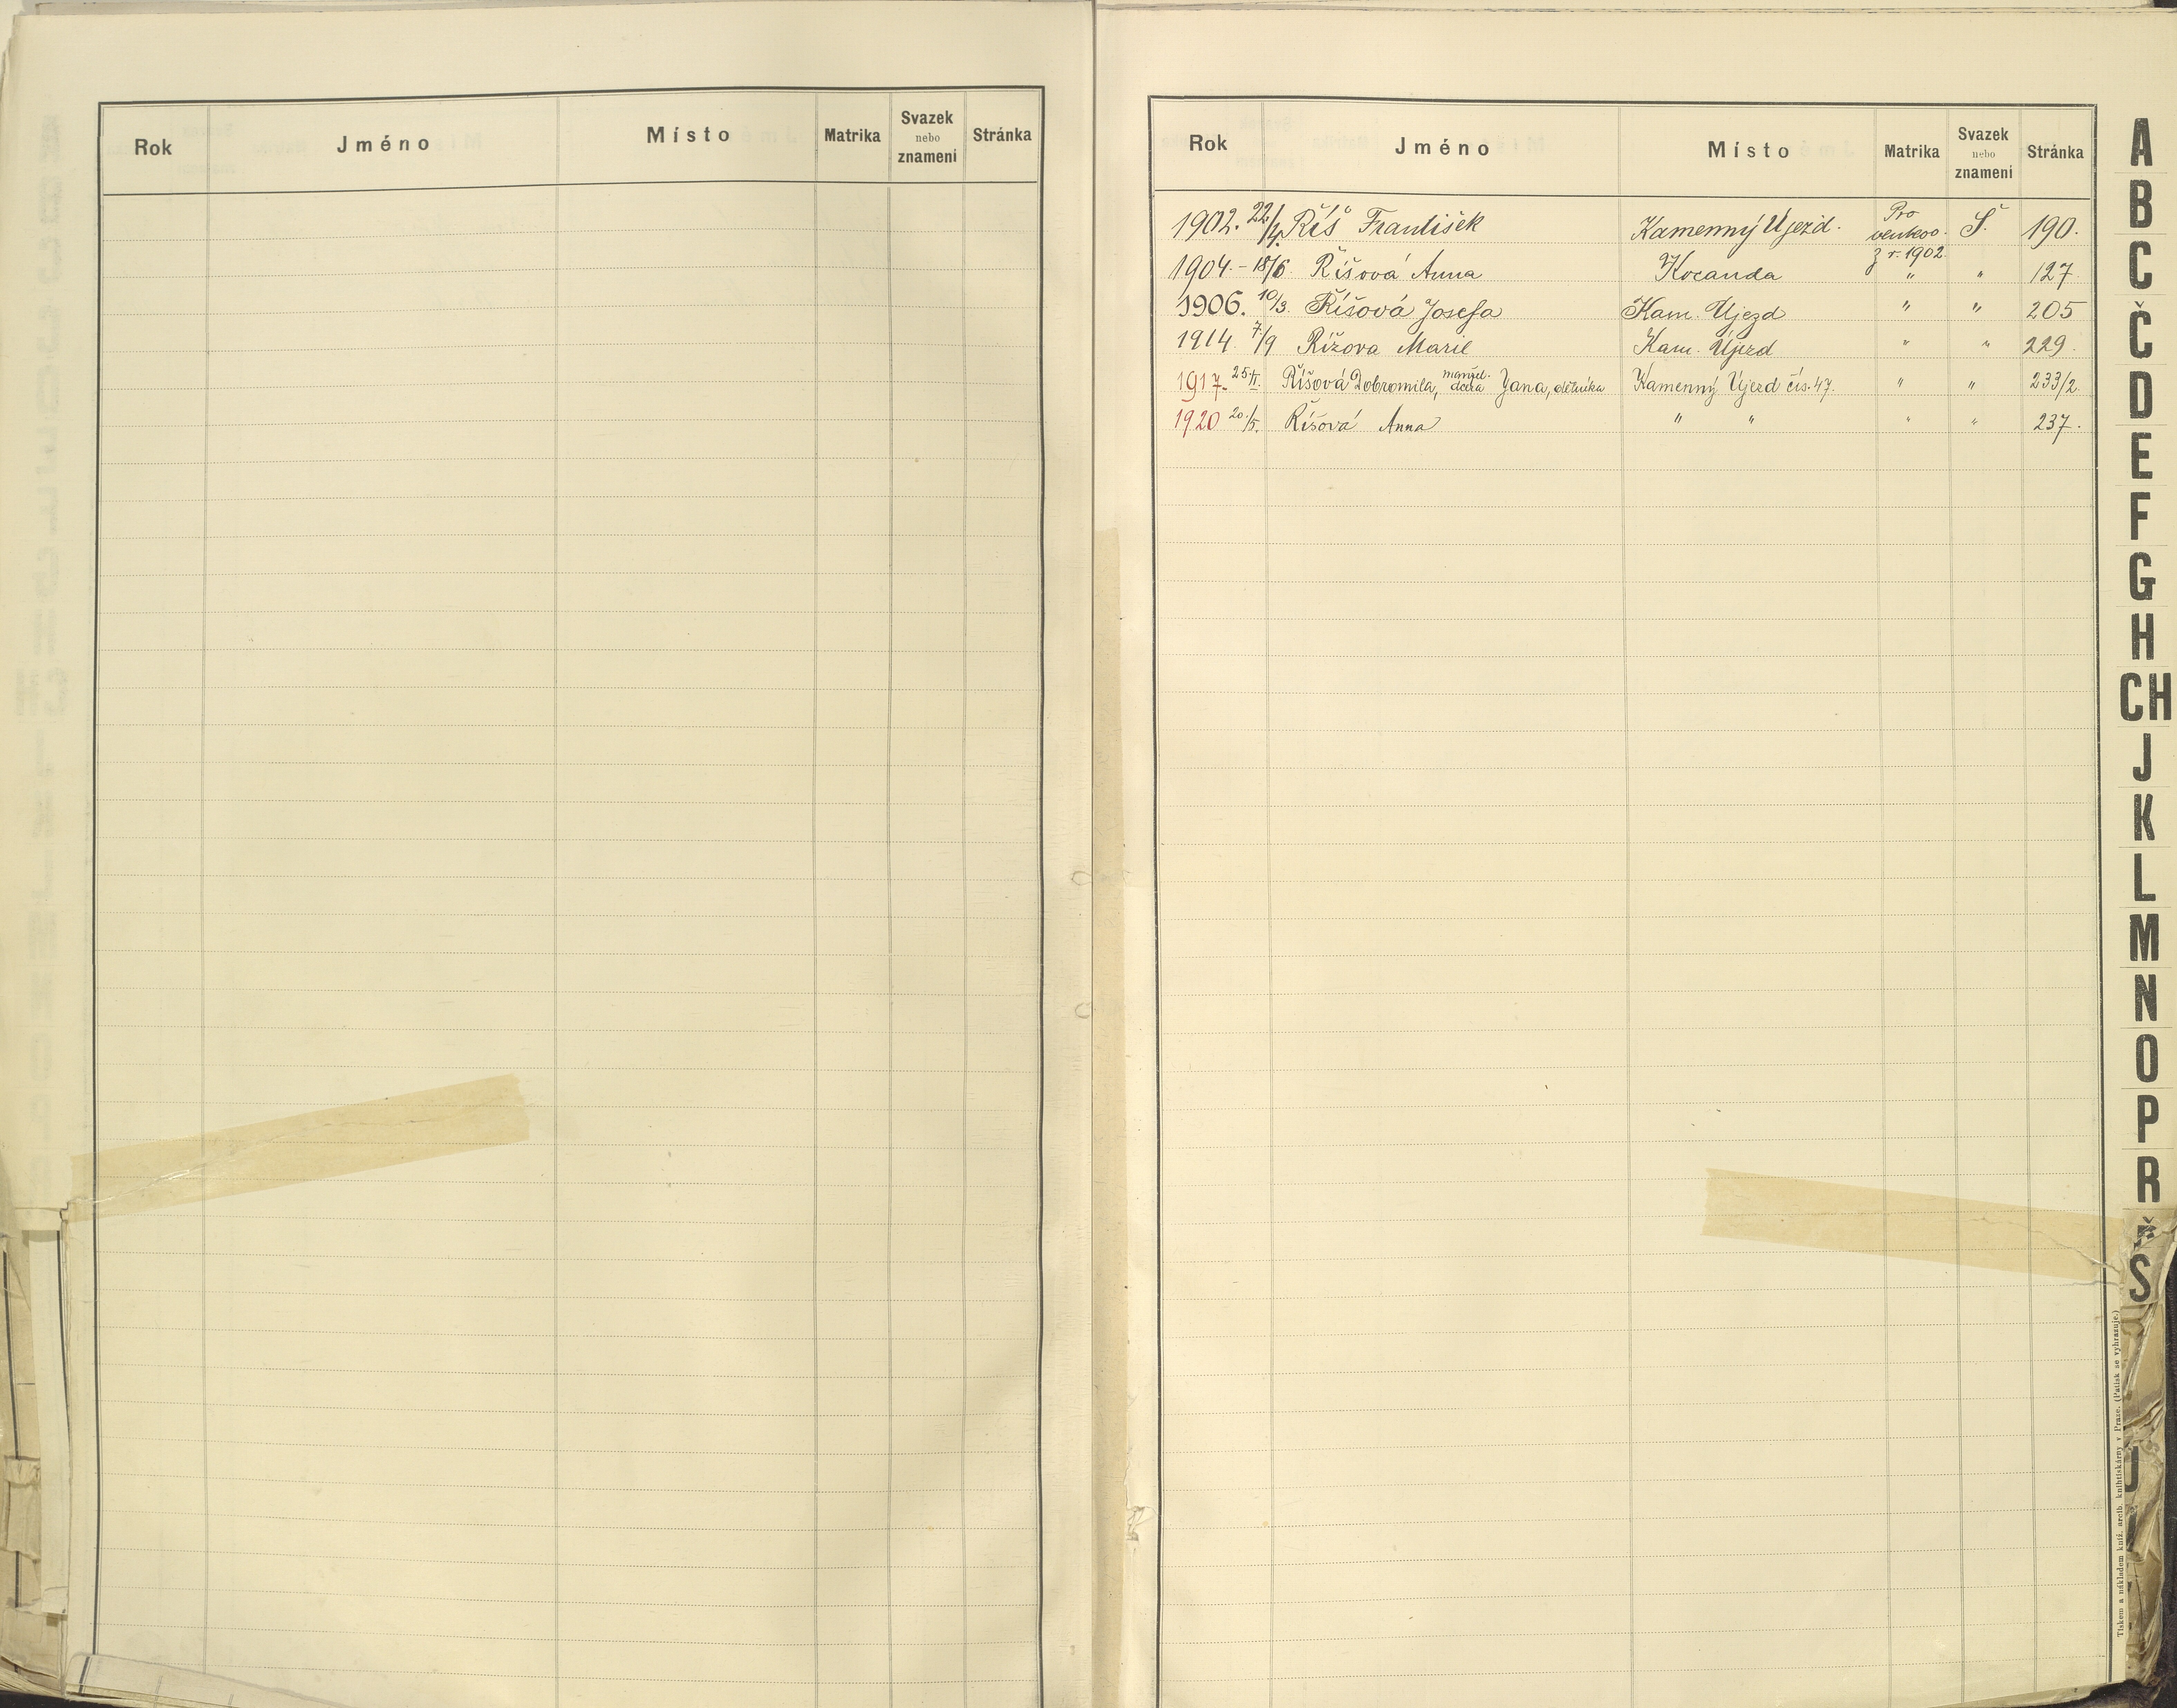 Rok Jméno Místo Matrika Svazek nebo znamení Stránka
Rok Jméno Místo Matrika Svazek nebo znamení Stránka
1902. 22/4. Říš František Kamenný Újezd. Pro venkov. z r. 1902 Š. 190.
1904. - 18/6. Říšová Anna Kocanda " " 127.
1906. 10/3. Říšová Josefa Kam. Újezd " " 205
1914 7/9 Řížova Marie Kam. Újezd " " 229.
1917. 25./II. Říšová Dobromila, manžel. dcera Jana, dělníka Kamenný Újezd čís. 47. " " 233/2.
1920 20./5. Říšová Anna " " " " 237.
A
B
C
Č
D
E
F
G
H
CH
J
K
L
M
N
O
P
R
Ř
S
U
Tiskem a nákladem kníž. arcib. knihtiskárny v Praze. (Patisk se vyhrazuje.)